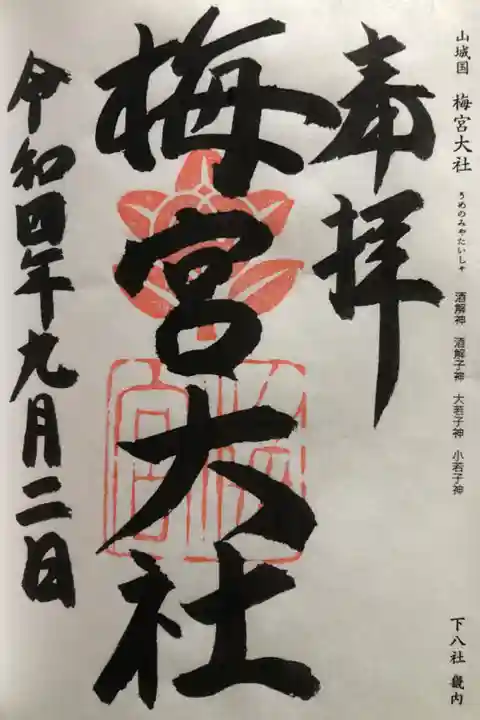 山城国 梅宮大社 うめのみやたいしゃ 酒解神 酒解子神 大若子神 小若子神
下八社 畿内
奉拝
梅宮大社
令和四年九月二日